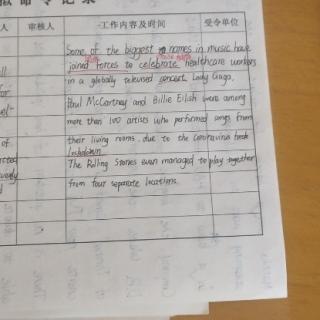 命令记录
审核人 工作内容及时间 受令单位
Some of the biggest names in music have
joined forces to celebrate healthcare workers
in a globally televised concert. Lady Gaga,
Paul McCartney and Billie Eilish were among
more than 100 artists who performed songs from
their living rooms due to the coronavirus
lockdown.
The Rolling Stones even managed to play together
from four separate locations.